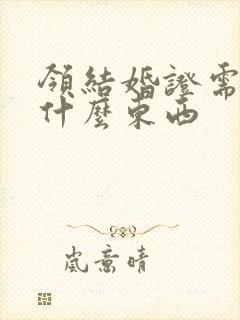 領結婚證需
什麼東西
嵐意晴